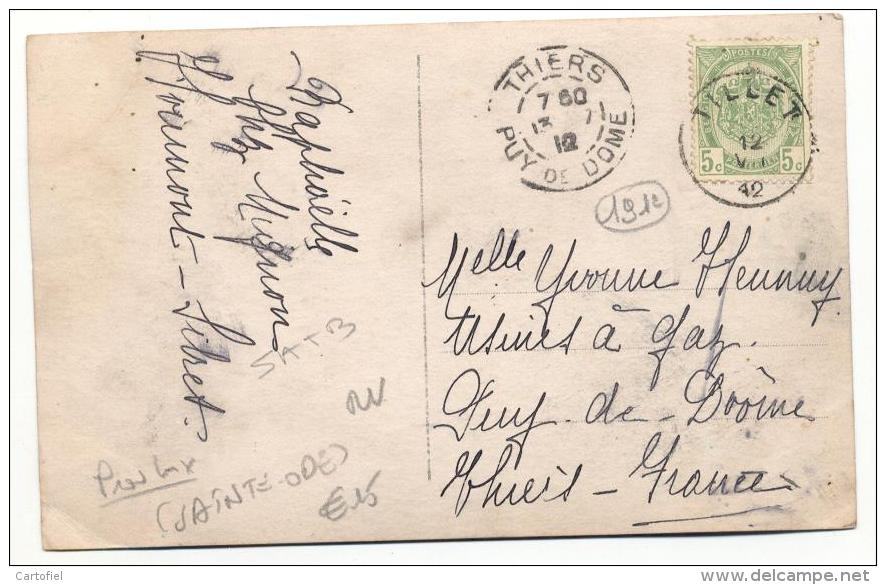 Raphaëlle
chez Mignon
THIERS
7 60
13 7
12
PUY DE DOME
POSTES
5c 5c
TILLET
12
VII
12
1912
Melle Yvonne Hennuy
Usines à Gaz.
Puy-de-Dôme
Thiers - France
SAT3
RN
Prov Lux
(SAINTE-ODE)
€15
Cartofiel
www.delcampe.net